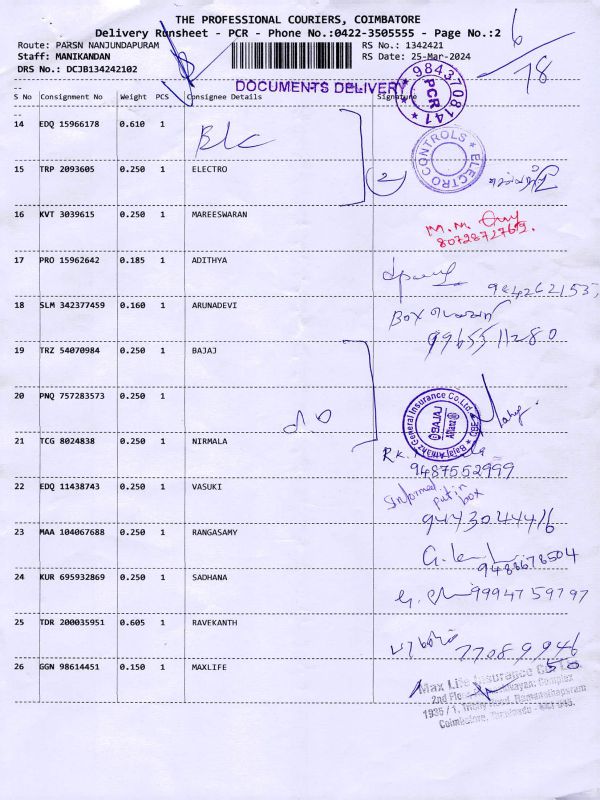 THE PROFESSIONAL COURIERS, COIMBATORE
Delivery Runsheet - PCR - Phone No.:0422-3505555 - Page No.:2
Route: PARSN NANJUNDAPURAM RS No.: 1342421
Staff: MANIKANDAN RS Date: 25-Mar-2024
DRS No.: DCJB134242102
6/78
DOCUMENTS DELIVERY
PCR
9843708141
S No Consignment No Weight PCS Consignee Details Signature
14 EDQ 15966178 0.610 1
15 TRP 2093605 0.250 1 ELECTRO
2
ELECTRO CONTROLS
16 KVT 3039615 0.250 1 MAREESWARAN
8072872769.
17 PRO 15962642 0.185 1 ADITHYA
18 SLM 342377459 0.160 1 ARUNADEVI
Box
9965511280
19 TRZ 54070984 0.250 1 BAJAJ
20 PNQ 757283573 0.250 1
Bajaj Allianz General Insurance Co.Ltd.
BAJAJ
Allianz
21 TCG 8024838 0.250 1 NIRMALA
9487552999
22 EDQ 11438743 0.250 1 VASUKI
Informed
put in
box
9443044416
23 MAA 104067688 0.250 1 RANGASAMY
9488678504
24 KUR 695932869 0.250 1 SADHANA
9994759797
25 TDR 200035951 0.605 1 RAVEKANTH
77089 9946
50
26 GGN 98614451 0.150 1 MAXLIFE
Max Life Insurance Co. Ltd
2nd Floor, Complex
1935 / 1, Trichy Road, Ramanathapuram
Coimbatore,